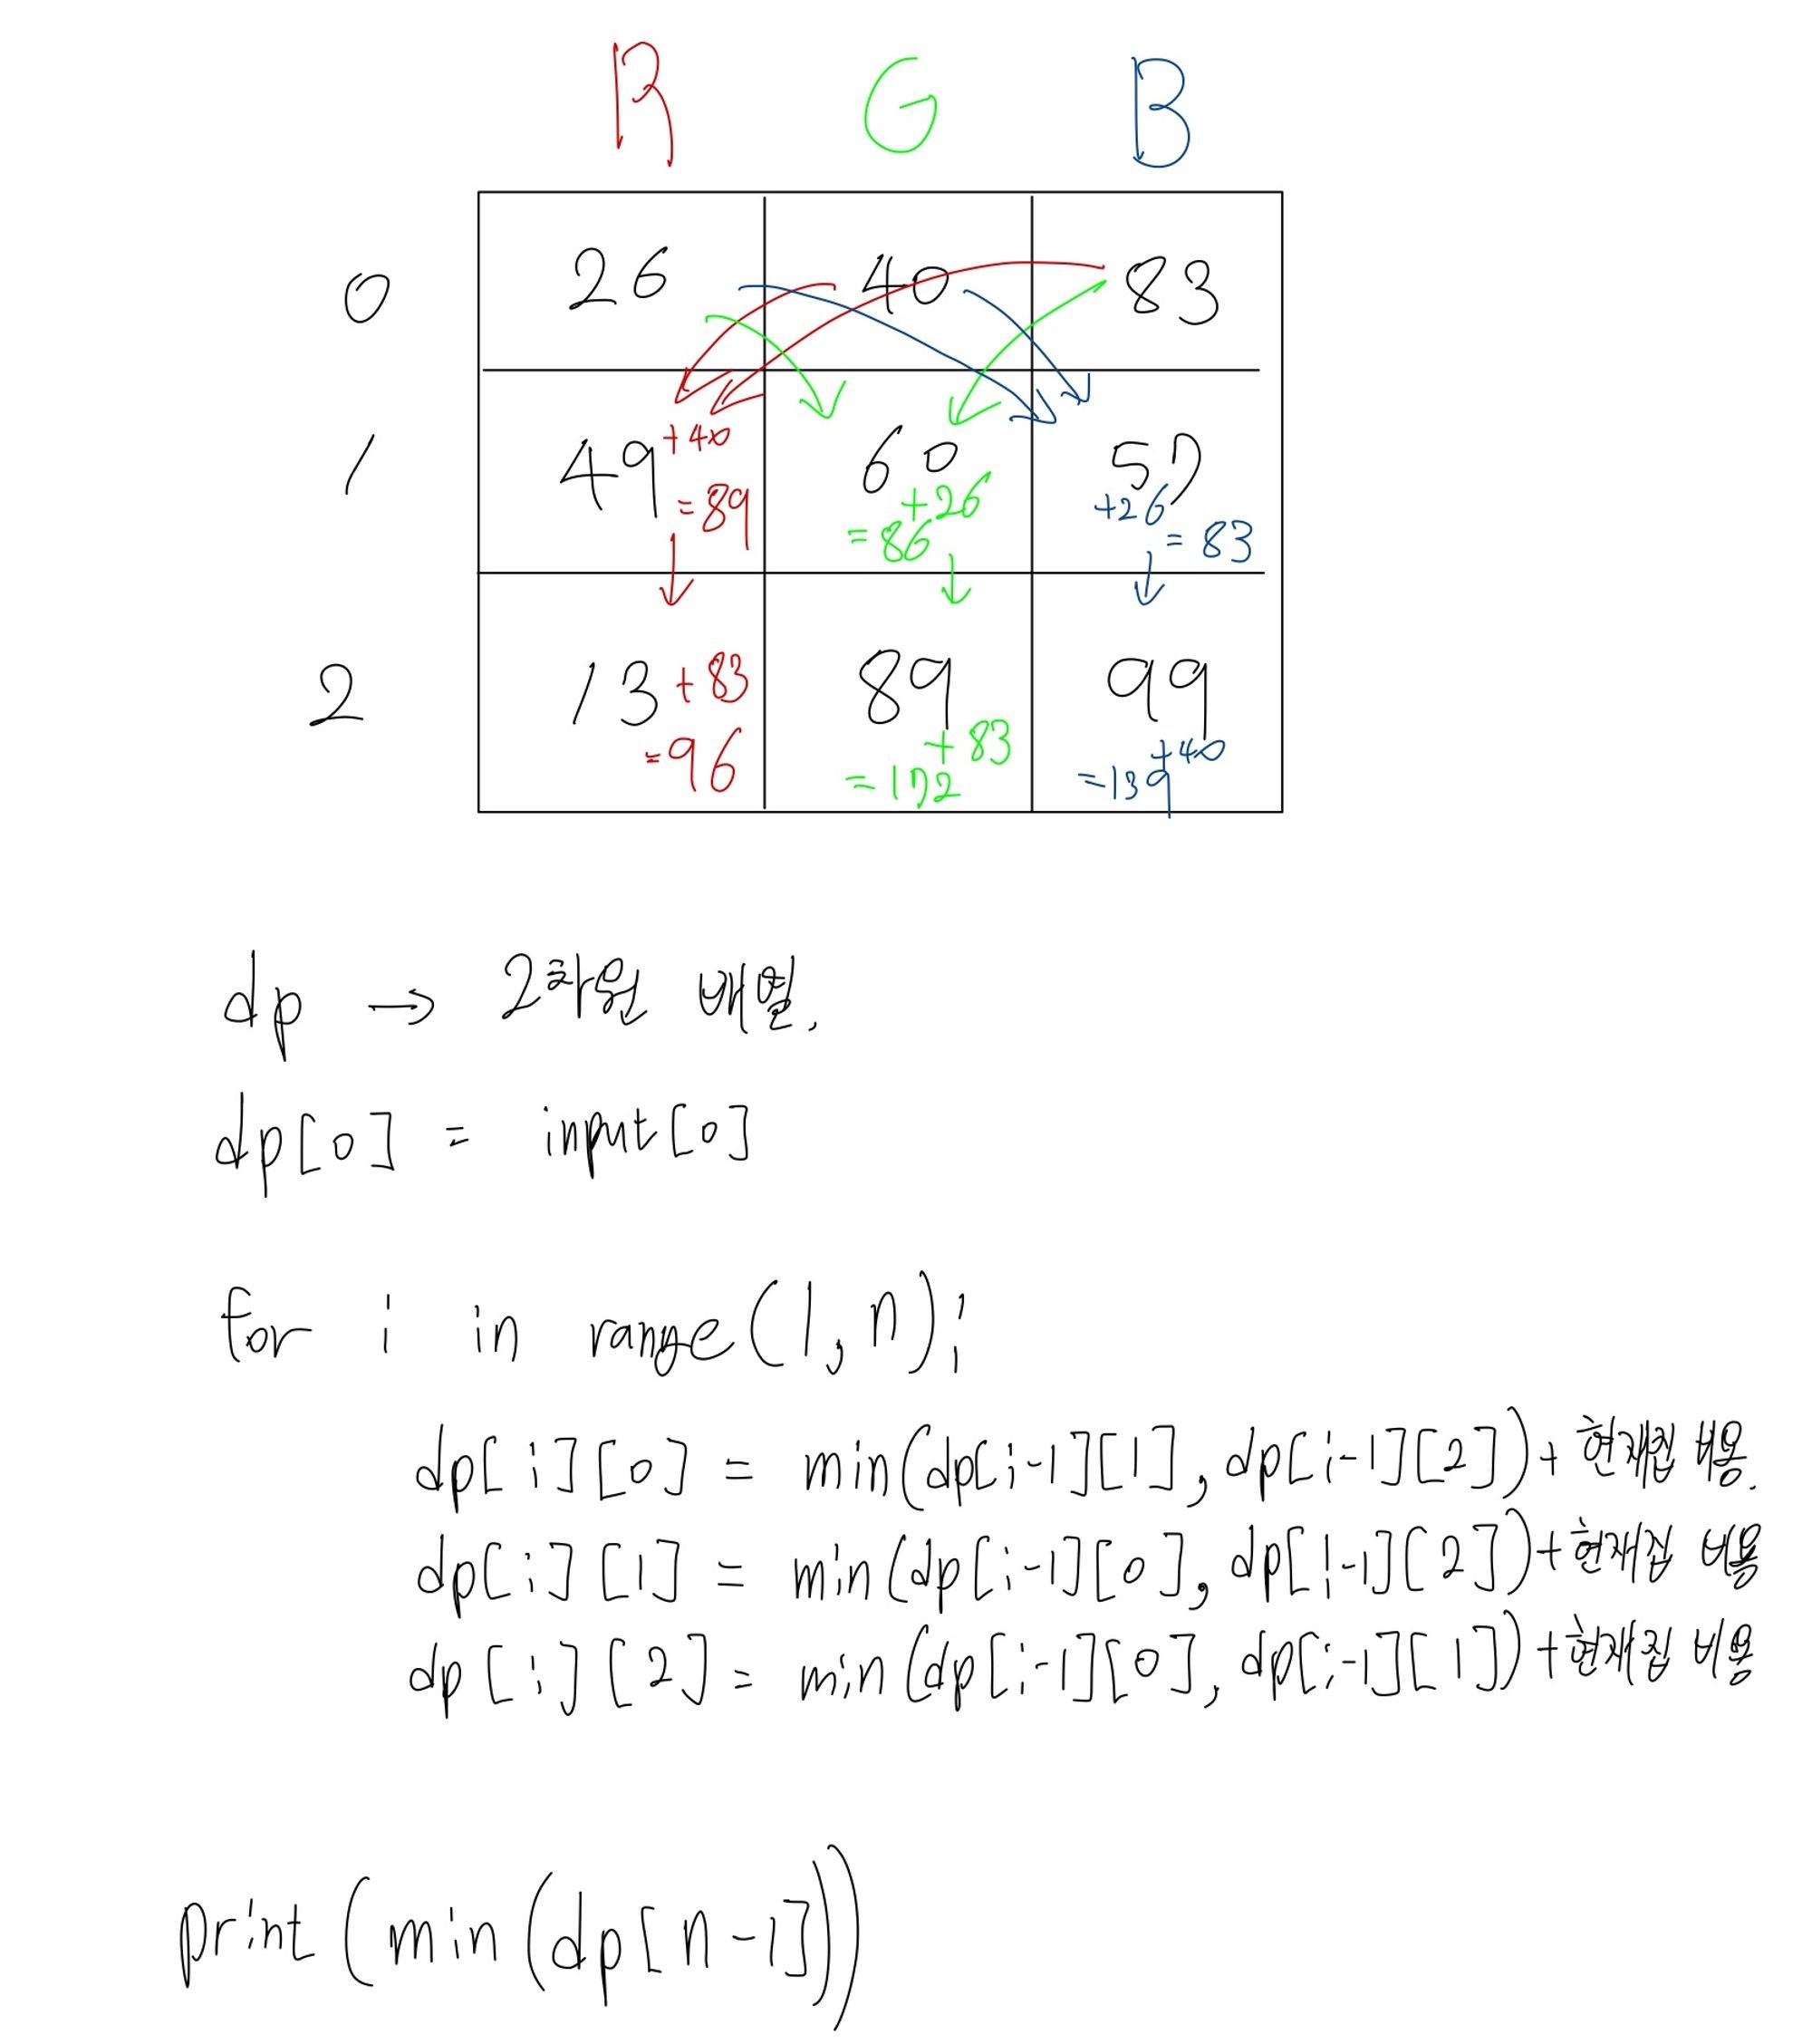 R G B
0 26 40 83
1 49 +40 =89 60 +26 =86 57 +26 =83
2 13 +83 =96 89 +83 =172 99 +40 =139
dp → 2차원 배열.
dp[0] = input[0]
for i in range(1, n):
dp[i][0] = min(dp[i-1][1], dp[i-1][2]) +현재집 비용.
dp[i][1] = min(dp[i-1][0], dp[i-1][2]) + 현재집 비용
dp[i][2] = min(dp[i-1][0], dp[i-1][1]) + 현재집 비용
print(min(dp[n-1]))